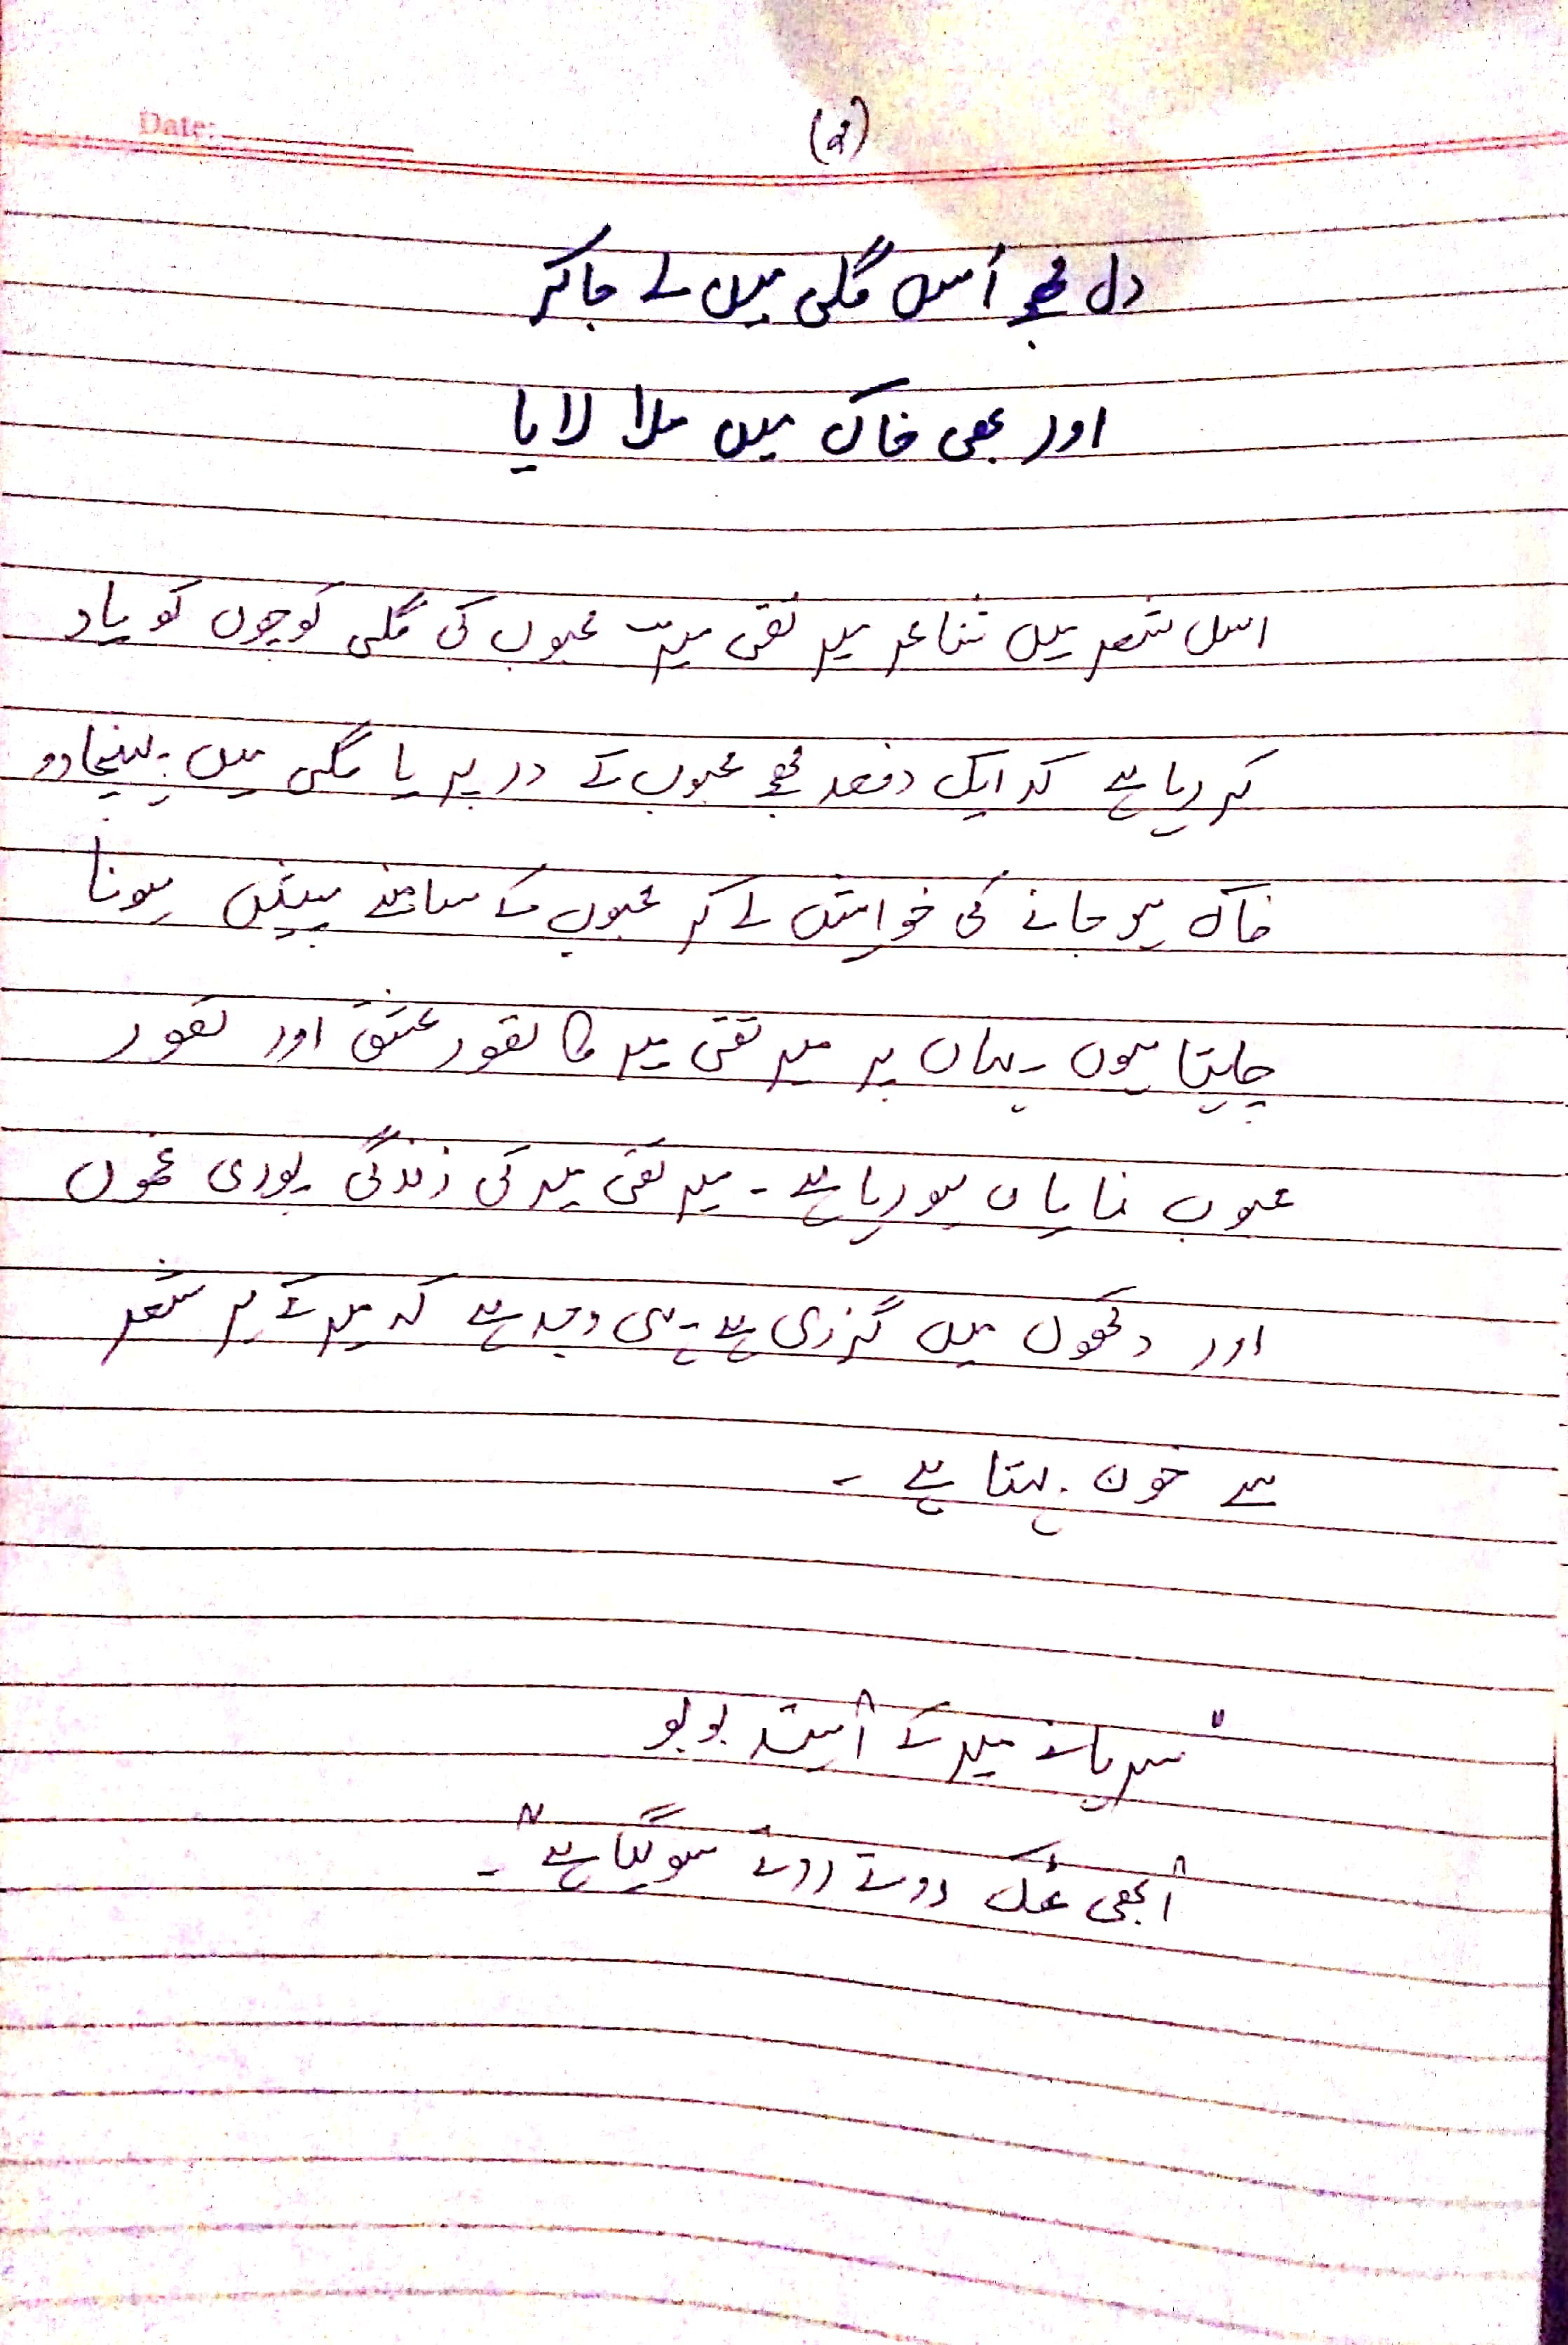 Date:
(2)
دل مجھے اُس گلی میں لے جاکر
اور بھی خاک میں ملا لایا
اس شعر میں شاعر میر تقی میر محبوب کی گلی کوچوں کو یاد
کر رہا ہے کہ ایک دفعہ مجھے محبوب کے در پر یا گلی میں پہنچادو
خاک ہو جانے کی خواہش لے کر محبوب کے سامنے پیش ہونا
چاہتا ہوں ۔ یہاں پر میر تقی میر کا تصور عشق اور تصور
محبوب نمایاں ہو رہا ہے ۔ میر تقی میر کی زندگی پوری غموں
اور دکھوں میں گزری ہے یہی وجہ ہے کہ میر کے ہر شعر
سے خون بہتا ہے ۔
"سرہانے میر کے آہستہ بولو
ابھی ٹک روتے روتے سوگیا ہے" ۔